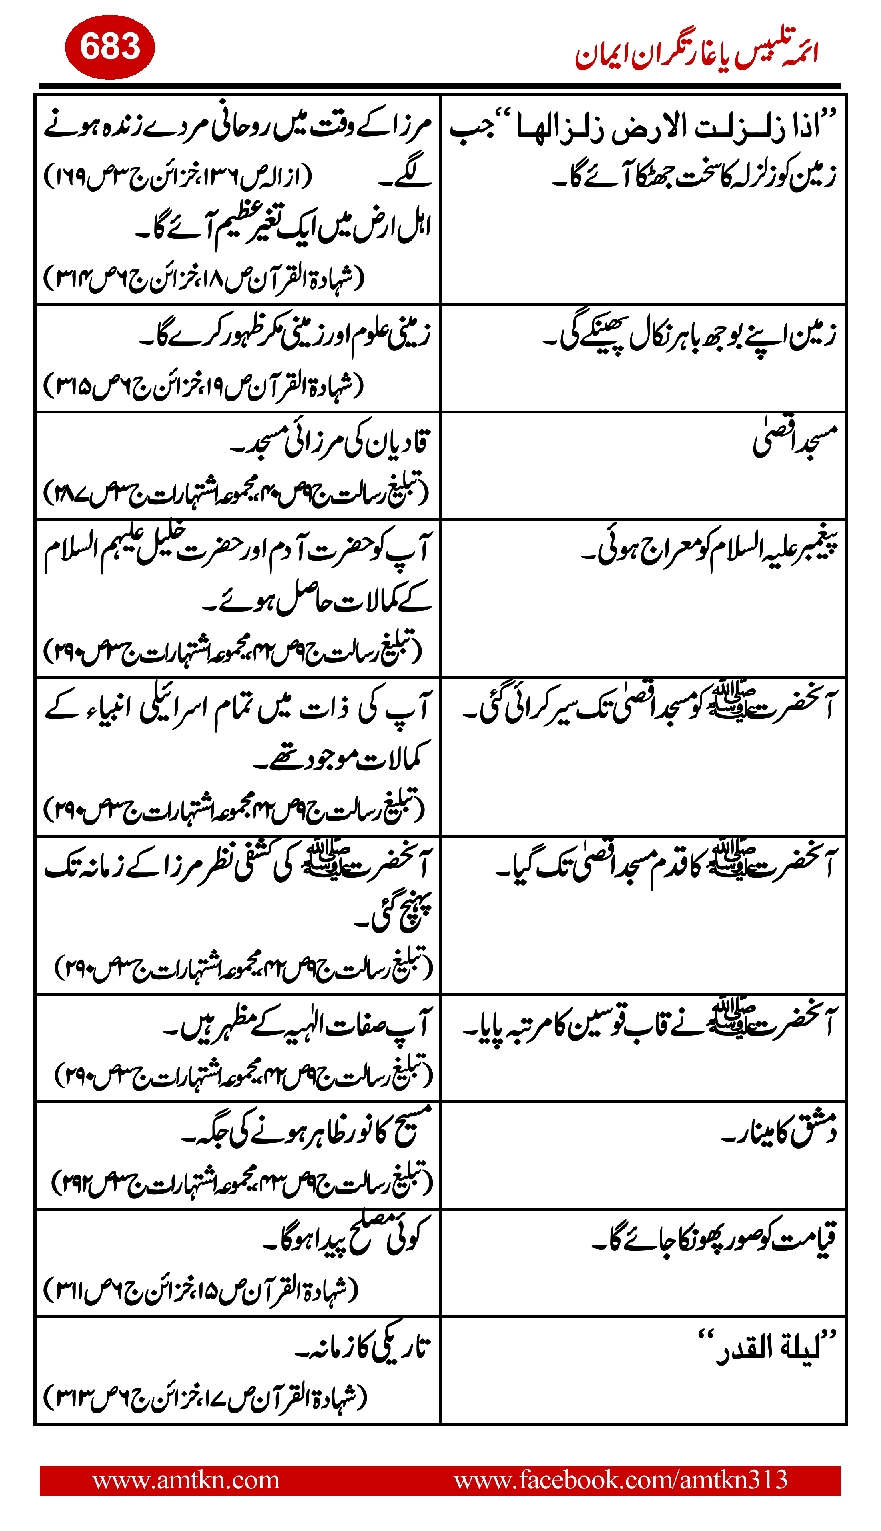 683
ائمہ تلبیس یا غارتگران ایمان
”اذا زلزلت الارض زلزالها“ جب
زمین کو زلزلہ کا سخت جھٹکا آئے گا۔
مرزا کے وقت میں روحانی مردے زندہ ہونے
لگے۔ (ازالہ ص۱۳۶، خزائن ج۳ ص۱۶۹)
اہل ارض میں ایک تغیر عظیم آئے گا۔
(شہادۃ القرآن ص۱۸، خزائن ج۶ ص۳۱۴)
زمین اپنے بوجھ باہر نکال پھینکے گی۔
زمینی علوم اور زمینی مکر ظہور کرے گا۔
(شہادۃ القرآن ص۱۹، خزائن ج۶ ص۳۱۵)
مسجد اقصیٰ
قادیان کی مرزائی مسجد۔
(تبلیغ رسالت ج۹ ص۴۰، مجموعہ اشتہارات ج۳ ص۲۸۷)
پیغمبر علیہ السلام کو معراج ہوئی۔
آپ کو حضرت آدم اور حضرت خلیل علیہم السلام
کے کمالات حاصل ہوئے۔
(تبلیغ رسالت ج۹ ص۴۲، مجموعہ اشتہارات ج۳ ص۲۹۰)
آنحضرت ﷺ کو مسجد اقصیٰ تک سیر کرائی گئی۔
آپ کی ذات میں تمام اسرائیلی انبیاء کے
کمالات موجود تھے۔
(تبلیغ رسالت ج۹ ص۴۲، مجموعہ اشتہارات ج۳ ص۲۹۰)
آنحضرت ﷺ کا قدم مسجد اقصیٰ تک گیا۔
آنحضرت ﷺ کی کشفی نظر مرزا کے زمانہ تک
پہنچ گئی۔
(تبلیغ رسالت ج۹ ص۴۲، مجموعہ اشتہارات ج۳ ص۲۹۰)
آنحضرت ﷺ نے قاب قوسین کا مرتبہ پایا۔
آپ صفات الٰہیہ کے مظہر ہیں۔
(تبلیغ رسالت ج۹ ص۴۲، مجموعہ اشتہارات ج۳ ص۲۹۰)
دمشق کا مینار۔
مسیح کا نور ظاہر ہونے کی جگہ۔
(تبلیغ رسالت ج۹ ص۴۳، مجموعہ اشتہارات ج۳ ص۲۹۲)
قیامت کو صور پھونکا جائے گا۔
کوئی مصلح پیدا ہوگا۔
(شہادۃ القرآن ص۱۵، خزائن ج۶ ص۳۱۱)
”لیلة القدر“
تاریکی کا زمانہ۔
(شہادۃ القرآن ص۱۷، خزائن ج۶ ص۳۱۳)
www.amtkn.com
www.facebook.com/amtkn313